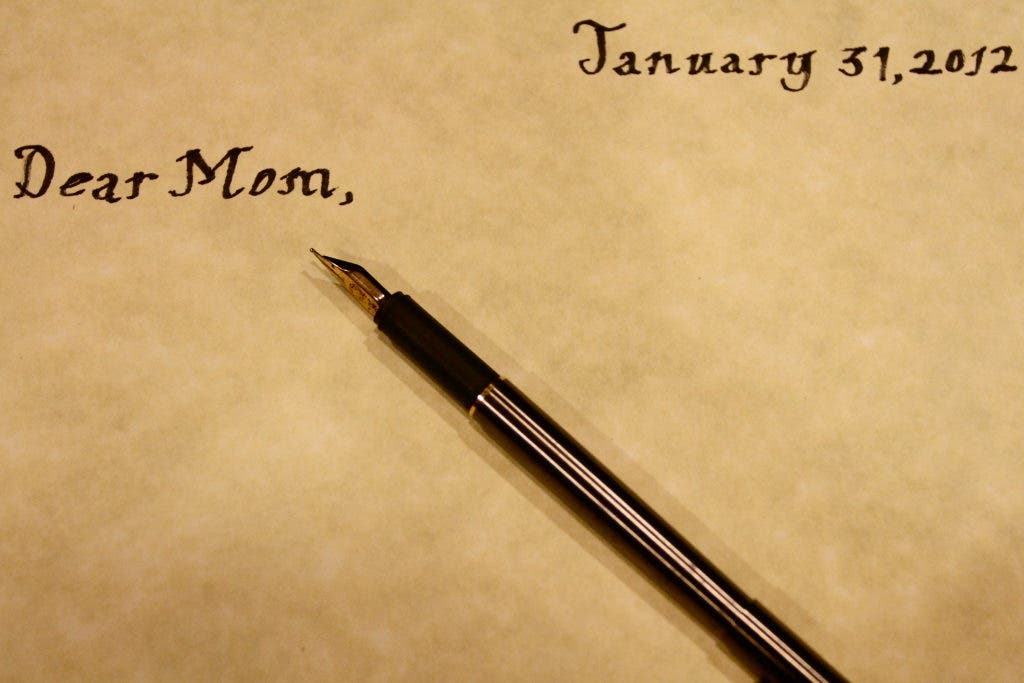 January 31, 2012
Dear Mom,